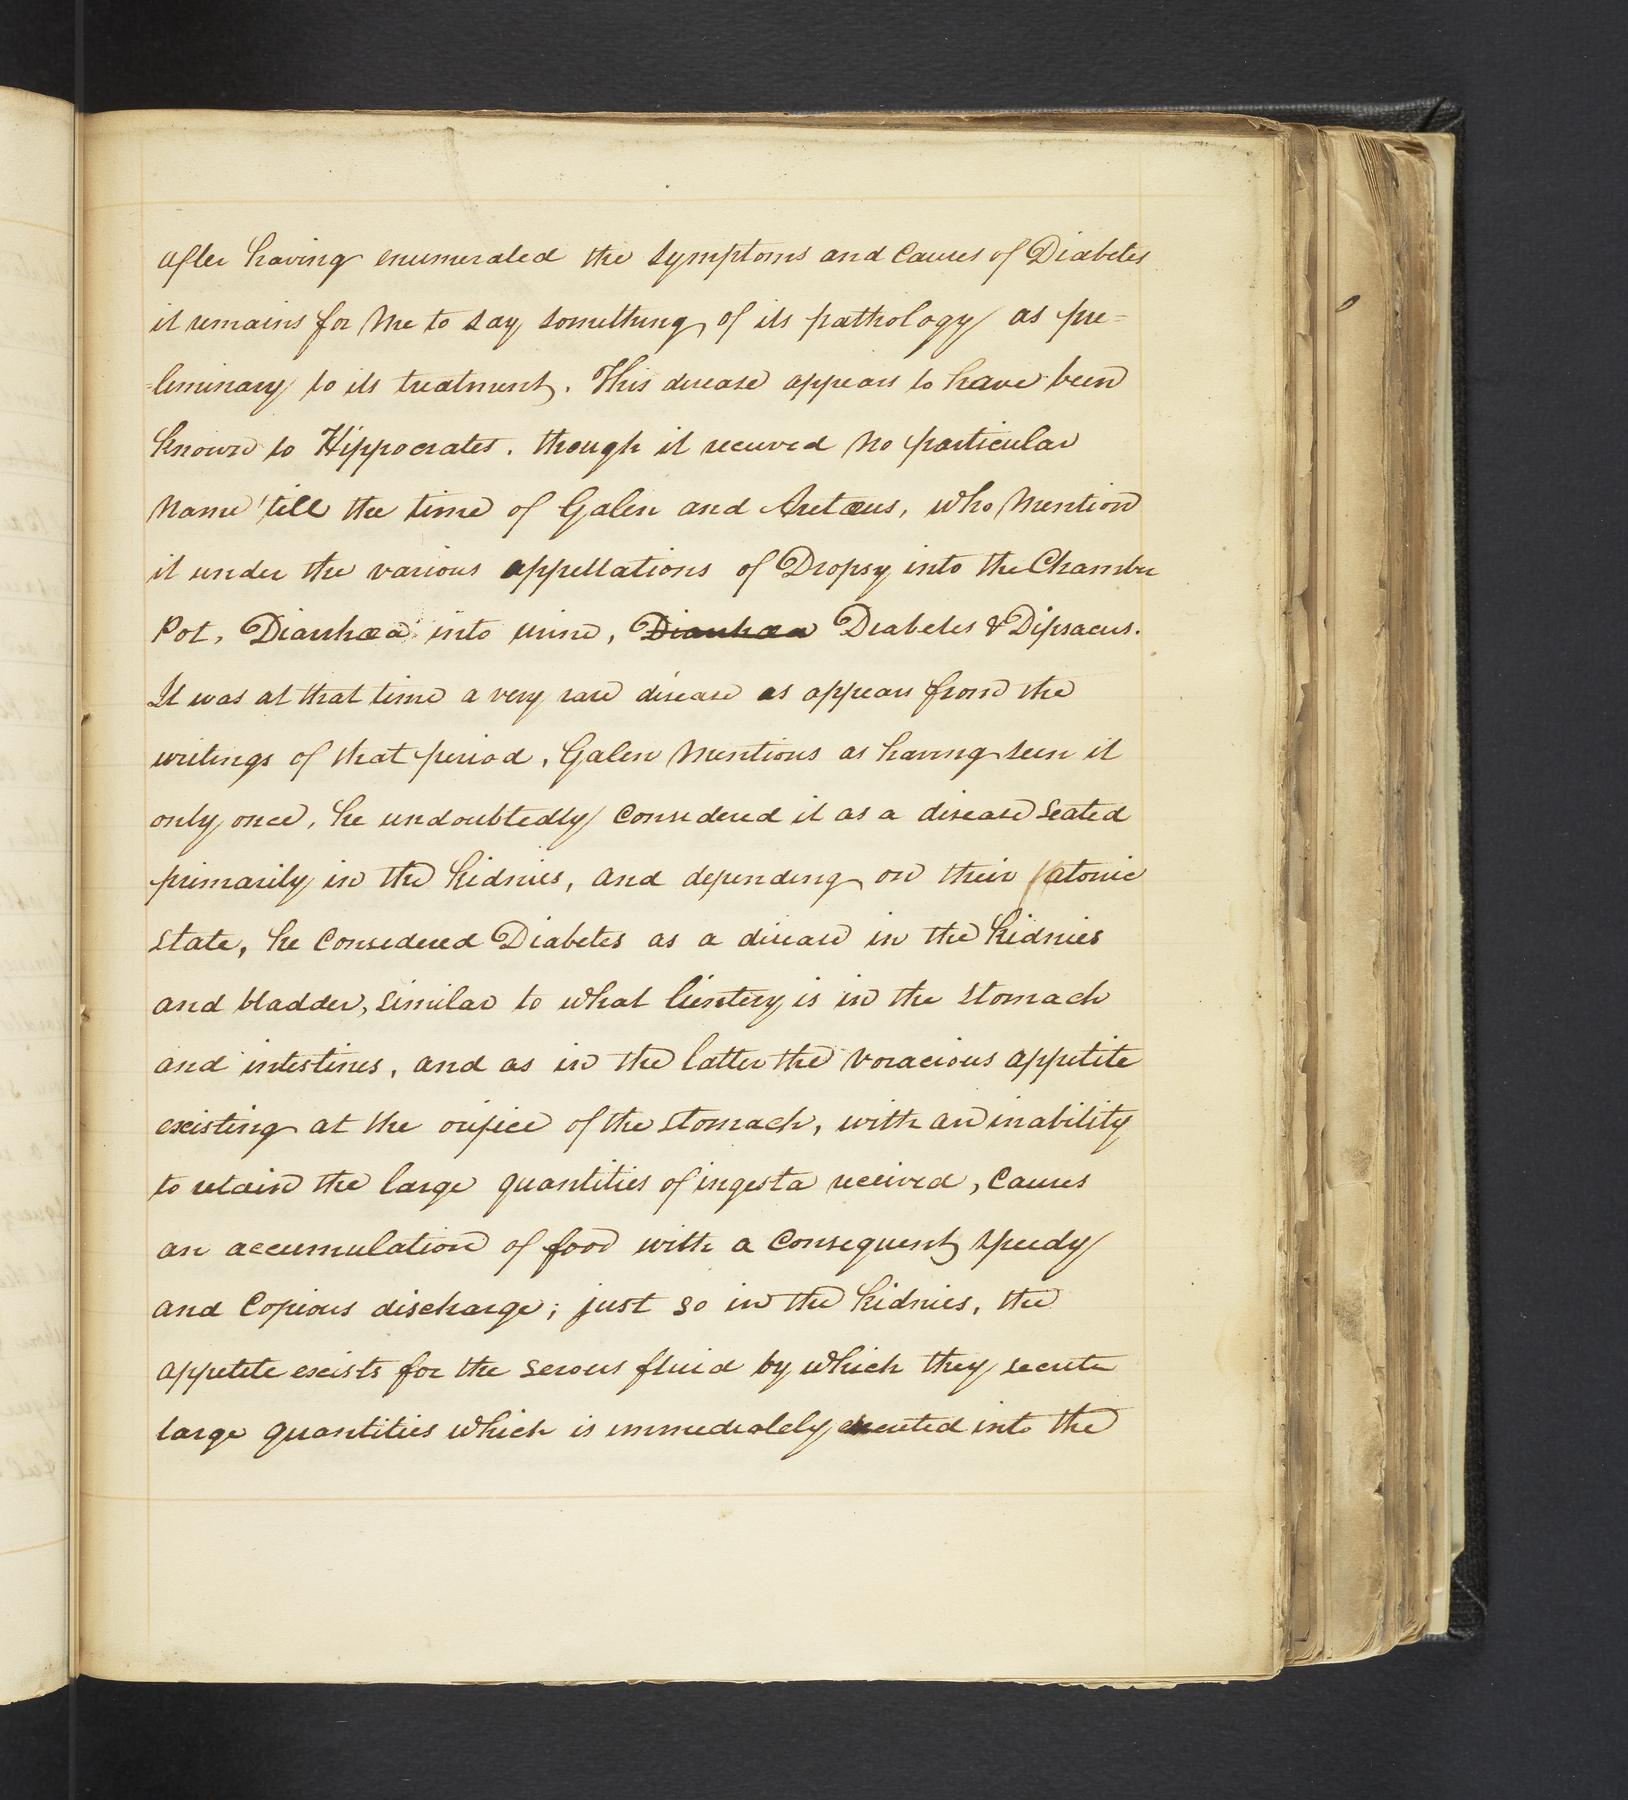 after having enumerated the symptoms and Causes of Diabetes
it remains for me to say something of its pathology as pre=
=liminary to its treatment. This disease appears to have been
known to Hippocrates. though it received no particular
name 'till the time of Galen and Aretæus, who mention
it under the various appellations of Dropsy into the Chamber
Pot, Diarrhæa into urine, Diarrhæa Diabetes & Dipsacus.
It was at that time a very rare disease as appears from the
writings of that period, Galen mentions as having seen it
only once, he undoubtedly Considered it as a disease seated
primarily in the kidnies, and depending on their atonic
state, he Considered Diabetes as a disease in the kidnies
and bladder, similar to what lientery is in the stomach
and intestines, and as in the latter the voracious appetite
existing at the orifice of the stomach, with an inability
to retain the large quantities of ingesta received, Causes
an accumulation of food with a Consequent speedy
and Copious discharge; just so in the kidnies, the
appetite exists for the serous fluid by which they secrete
large quantities which is immediately excreted into the